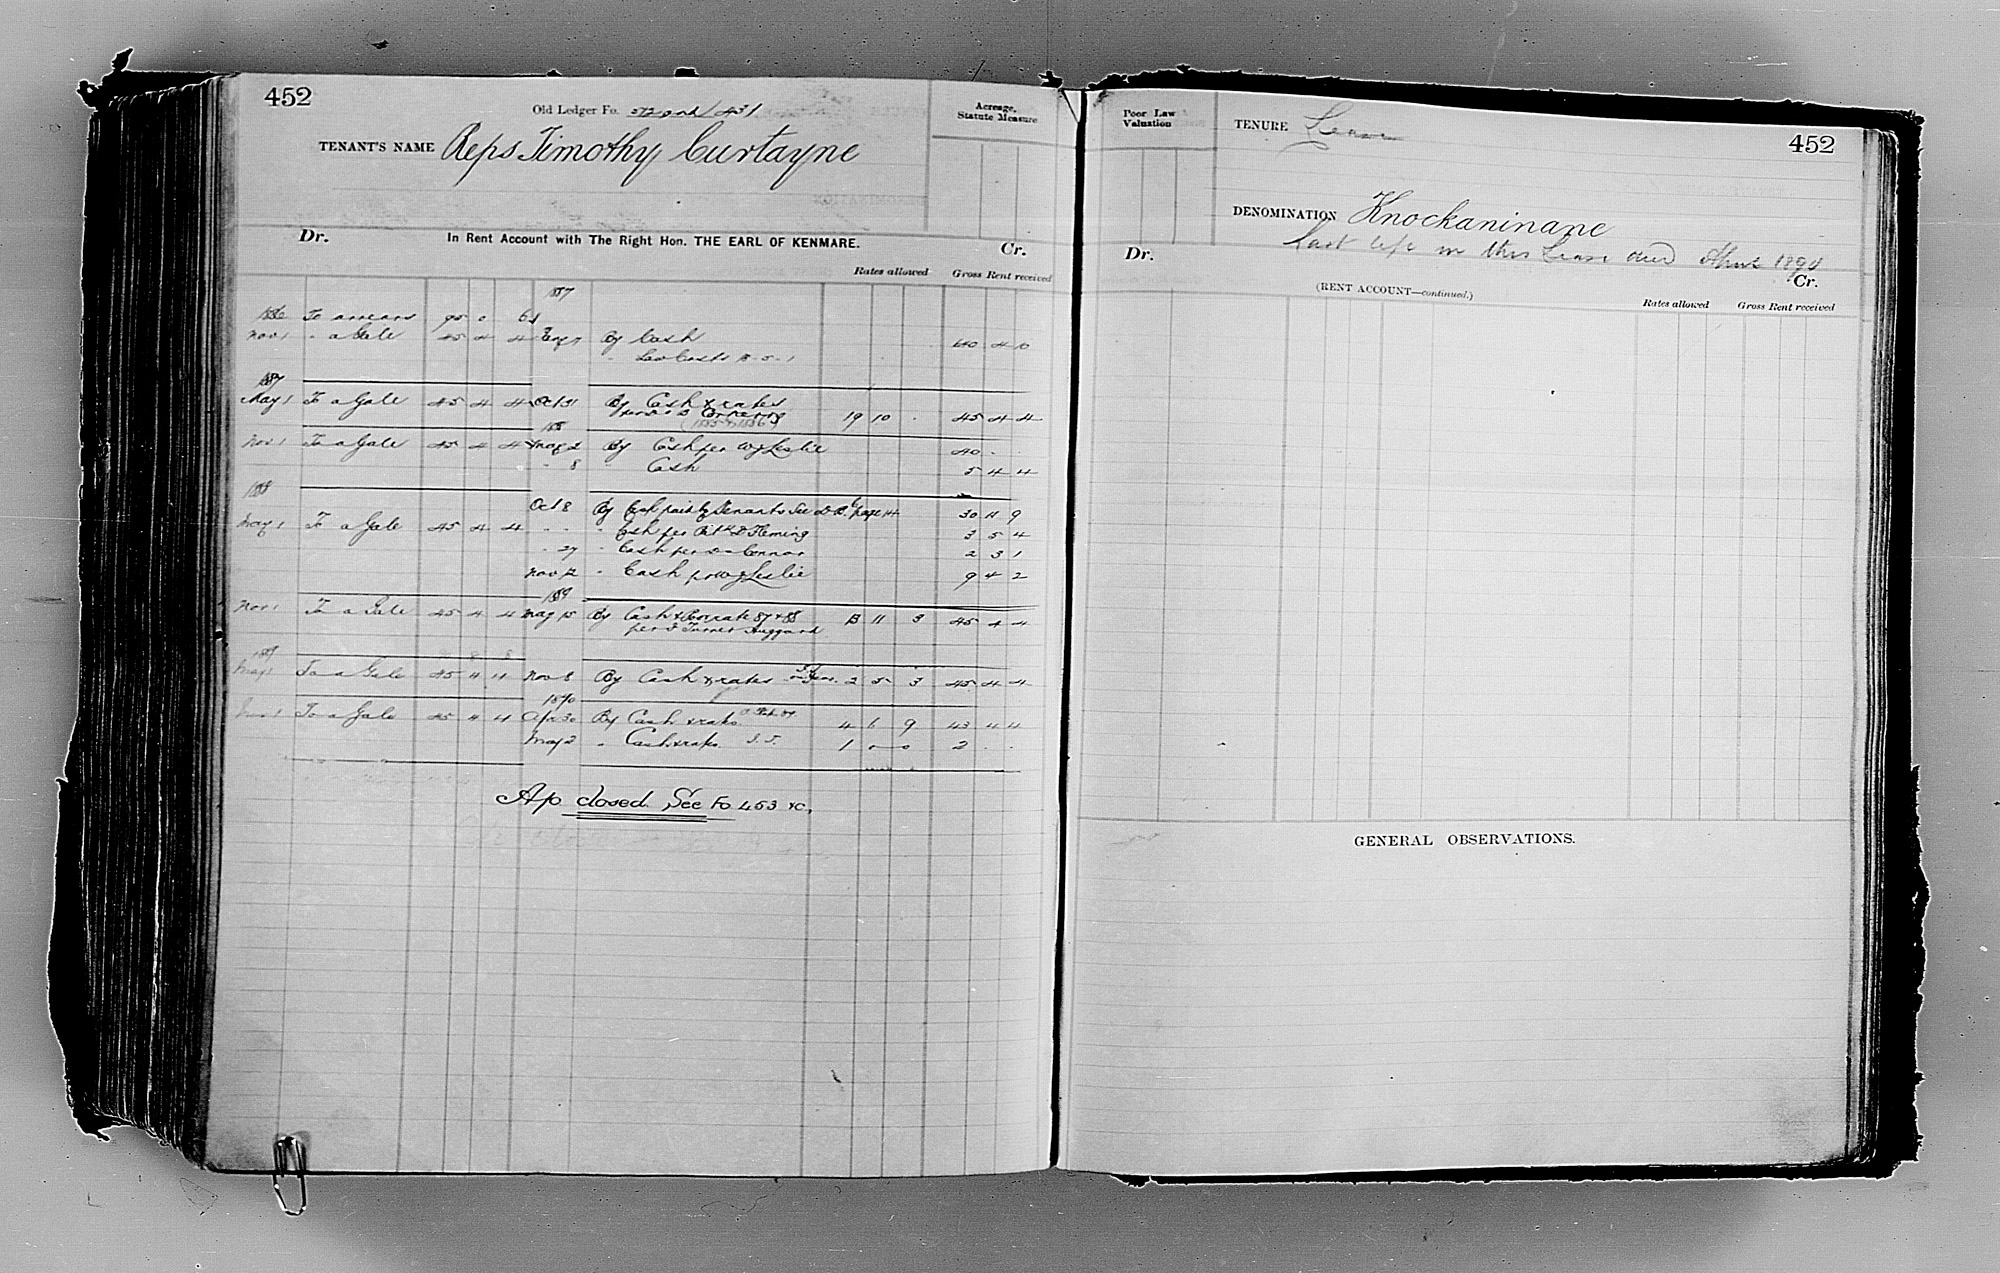 452
Old Ledger Fo. 431
Acreage, Statute Measure
TENANT'S NAME Reps Timothy Curtayne
Dr. In Rent Account with The Right Hon. THE EARL OF KENMARE. Cr.
Rates allowed Gross Rent received
1887
1886 To arrears 95 0 6
Nov 1 " a Gale 45 4 4 By Cash 140 4 10
" Law Costs 18-5-1
1887
May 1 To a Gale 45 4 4 Oct 31 By Cash & rates 19 10 . 45 4 4
(1885 & 1886)
188
Nov 1 To a Gale 45 4 4 May 2 By Cash per W J Leslie 40 . .
" 8 " Cash 5 4 4
1888
Oct 8 By Cash paid by Tenants See page 14 30 11 9
May 1 To a Gale 45 4 4 " " " Cash per Fleming 3 5 4
" 27 " Cash per Connor 2 3 1
Nov 12 " Cash per W J Leslie 9 4 2
1889
Nov 1 To a Gale 45 4 4 May 15 By Cash & Poor rate 87 & 88 13 11 3 45 4 4
per Turner Huggard
1889
May 1 To a Gale 45 4 4 Nov 8 By Cash & rates 2 5 3 45 4 4
1890
Nov 1 To a Gale 45 4 4 Apr 30 By Cash & rates 4 6 9 43 4 4
May 2 " Cash & rates 1 0 0 2 . .
A/c closed See Fo 453 &c,
Poor Law Valuation
TENURE Lease
452
DENOMINATION Knockaninane
Last life in this Lease died April 1890
Dr. Cr.
(RENT ACCOUNT—continued.)
Rates allowed Gross Rent received
GENERAL OBSERVATIONS.